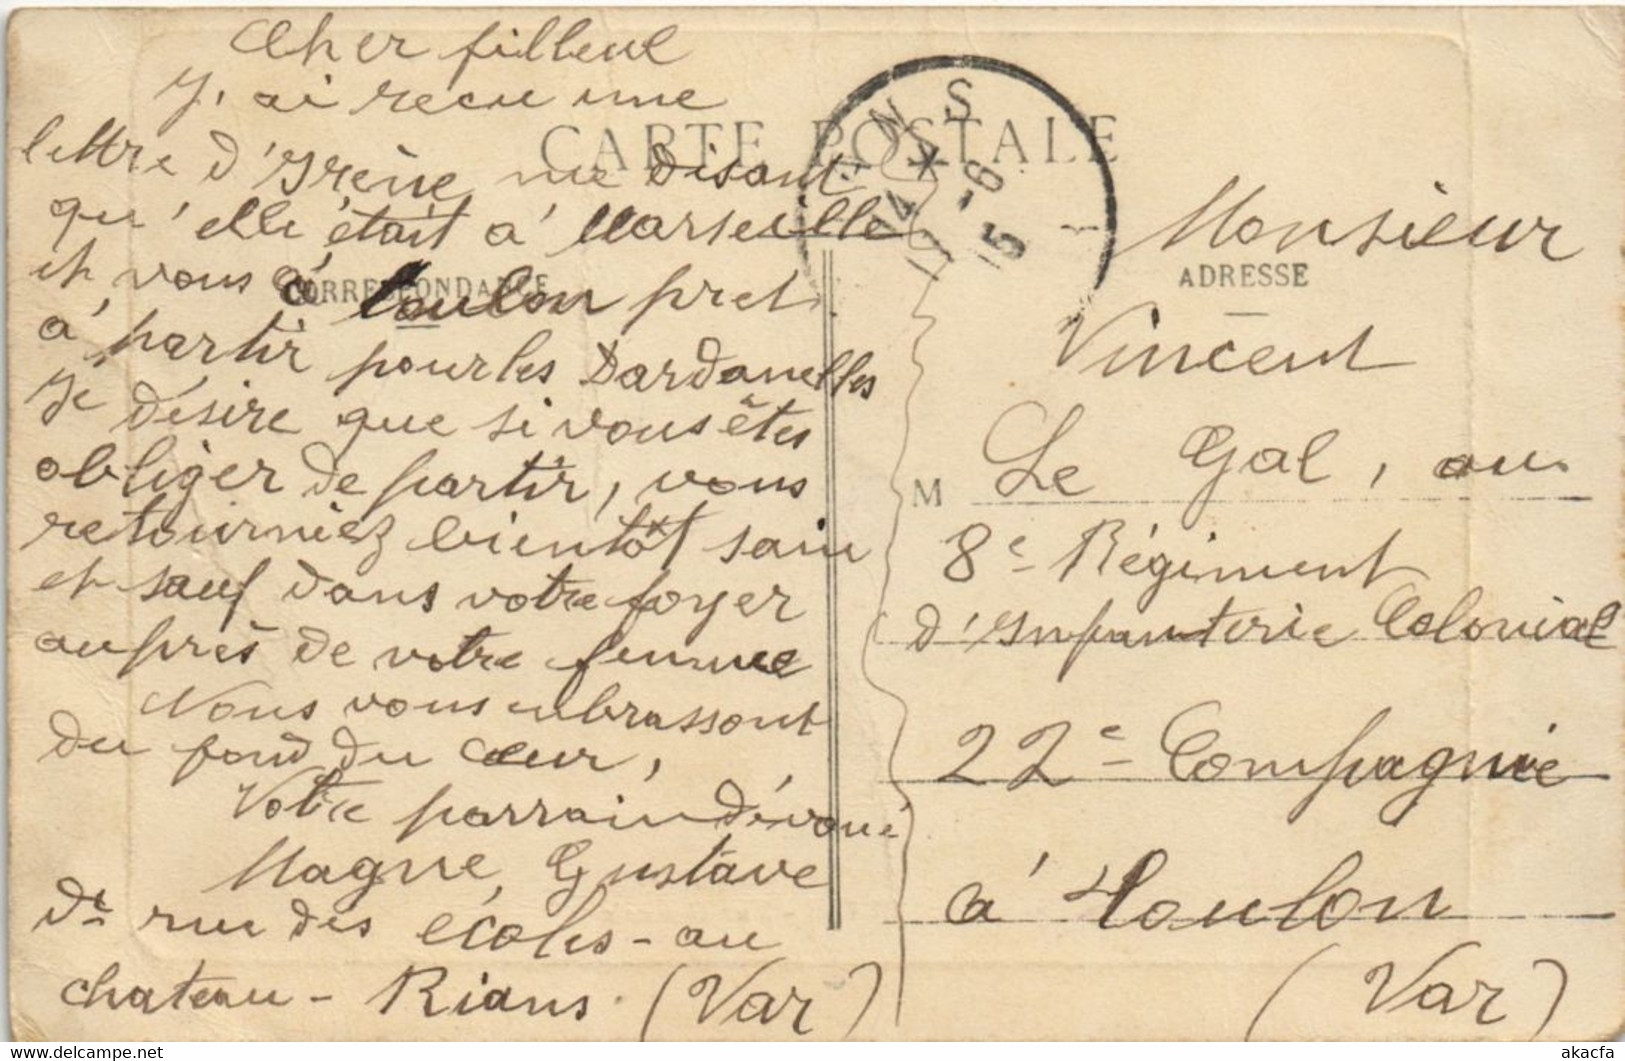 Cher filleul
J'ai recu une
lettre d'Irène me disant
qu'elle était à Marseille
et vous à Toulon pret
à partir pour les Dardanelles
Je désire que si vous êtes
obliger de partir, vous
retourniez bientôt sain
et sauf dans votre foyer
auprès de votre femme
Nous vous embrassont
du fond du cœur,
Votre parrain dévoué
Magne, Gustave
dt rue des écoles - au
chateau - Rians. (Var)
CARTE POSTALE
CORRESPONDANCE
ADRESSE
14 - 6
15
Monsieur
Vincent
M Le Gal, au
8e Régiment
d'Infanterie Colonial
22e Compagnie
à Toulon
(Var)
akacfa